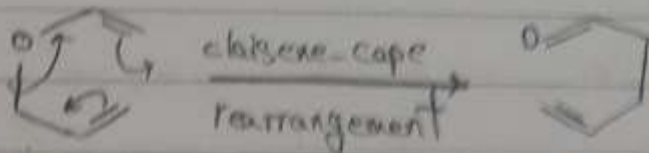 O
claisene-cope
rearrangement
O